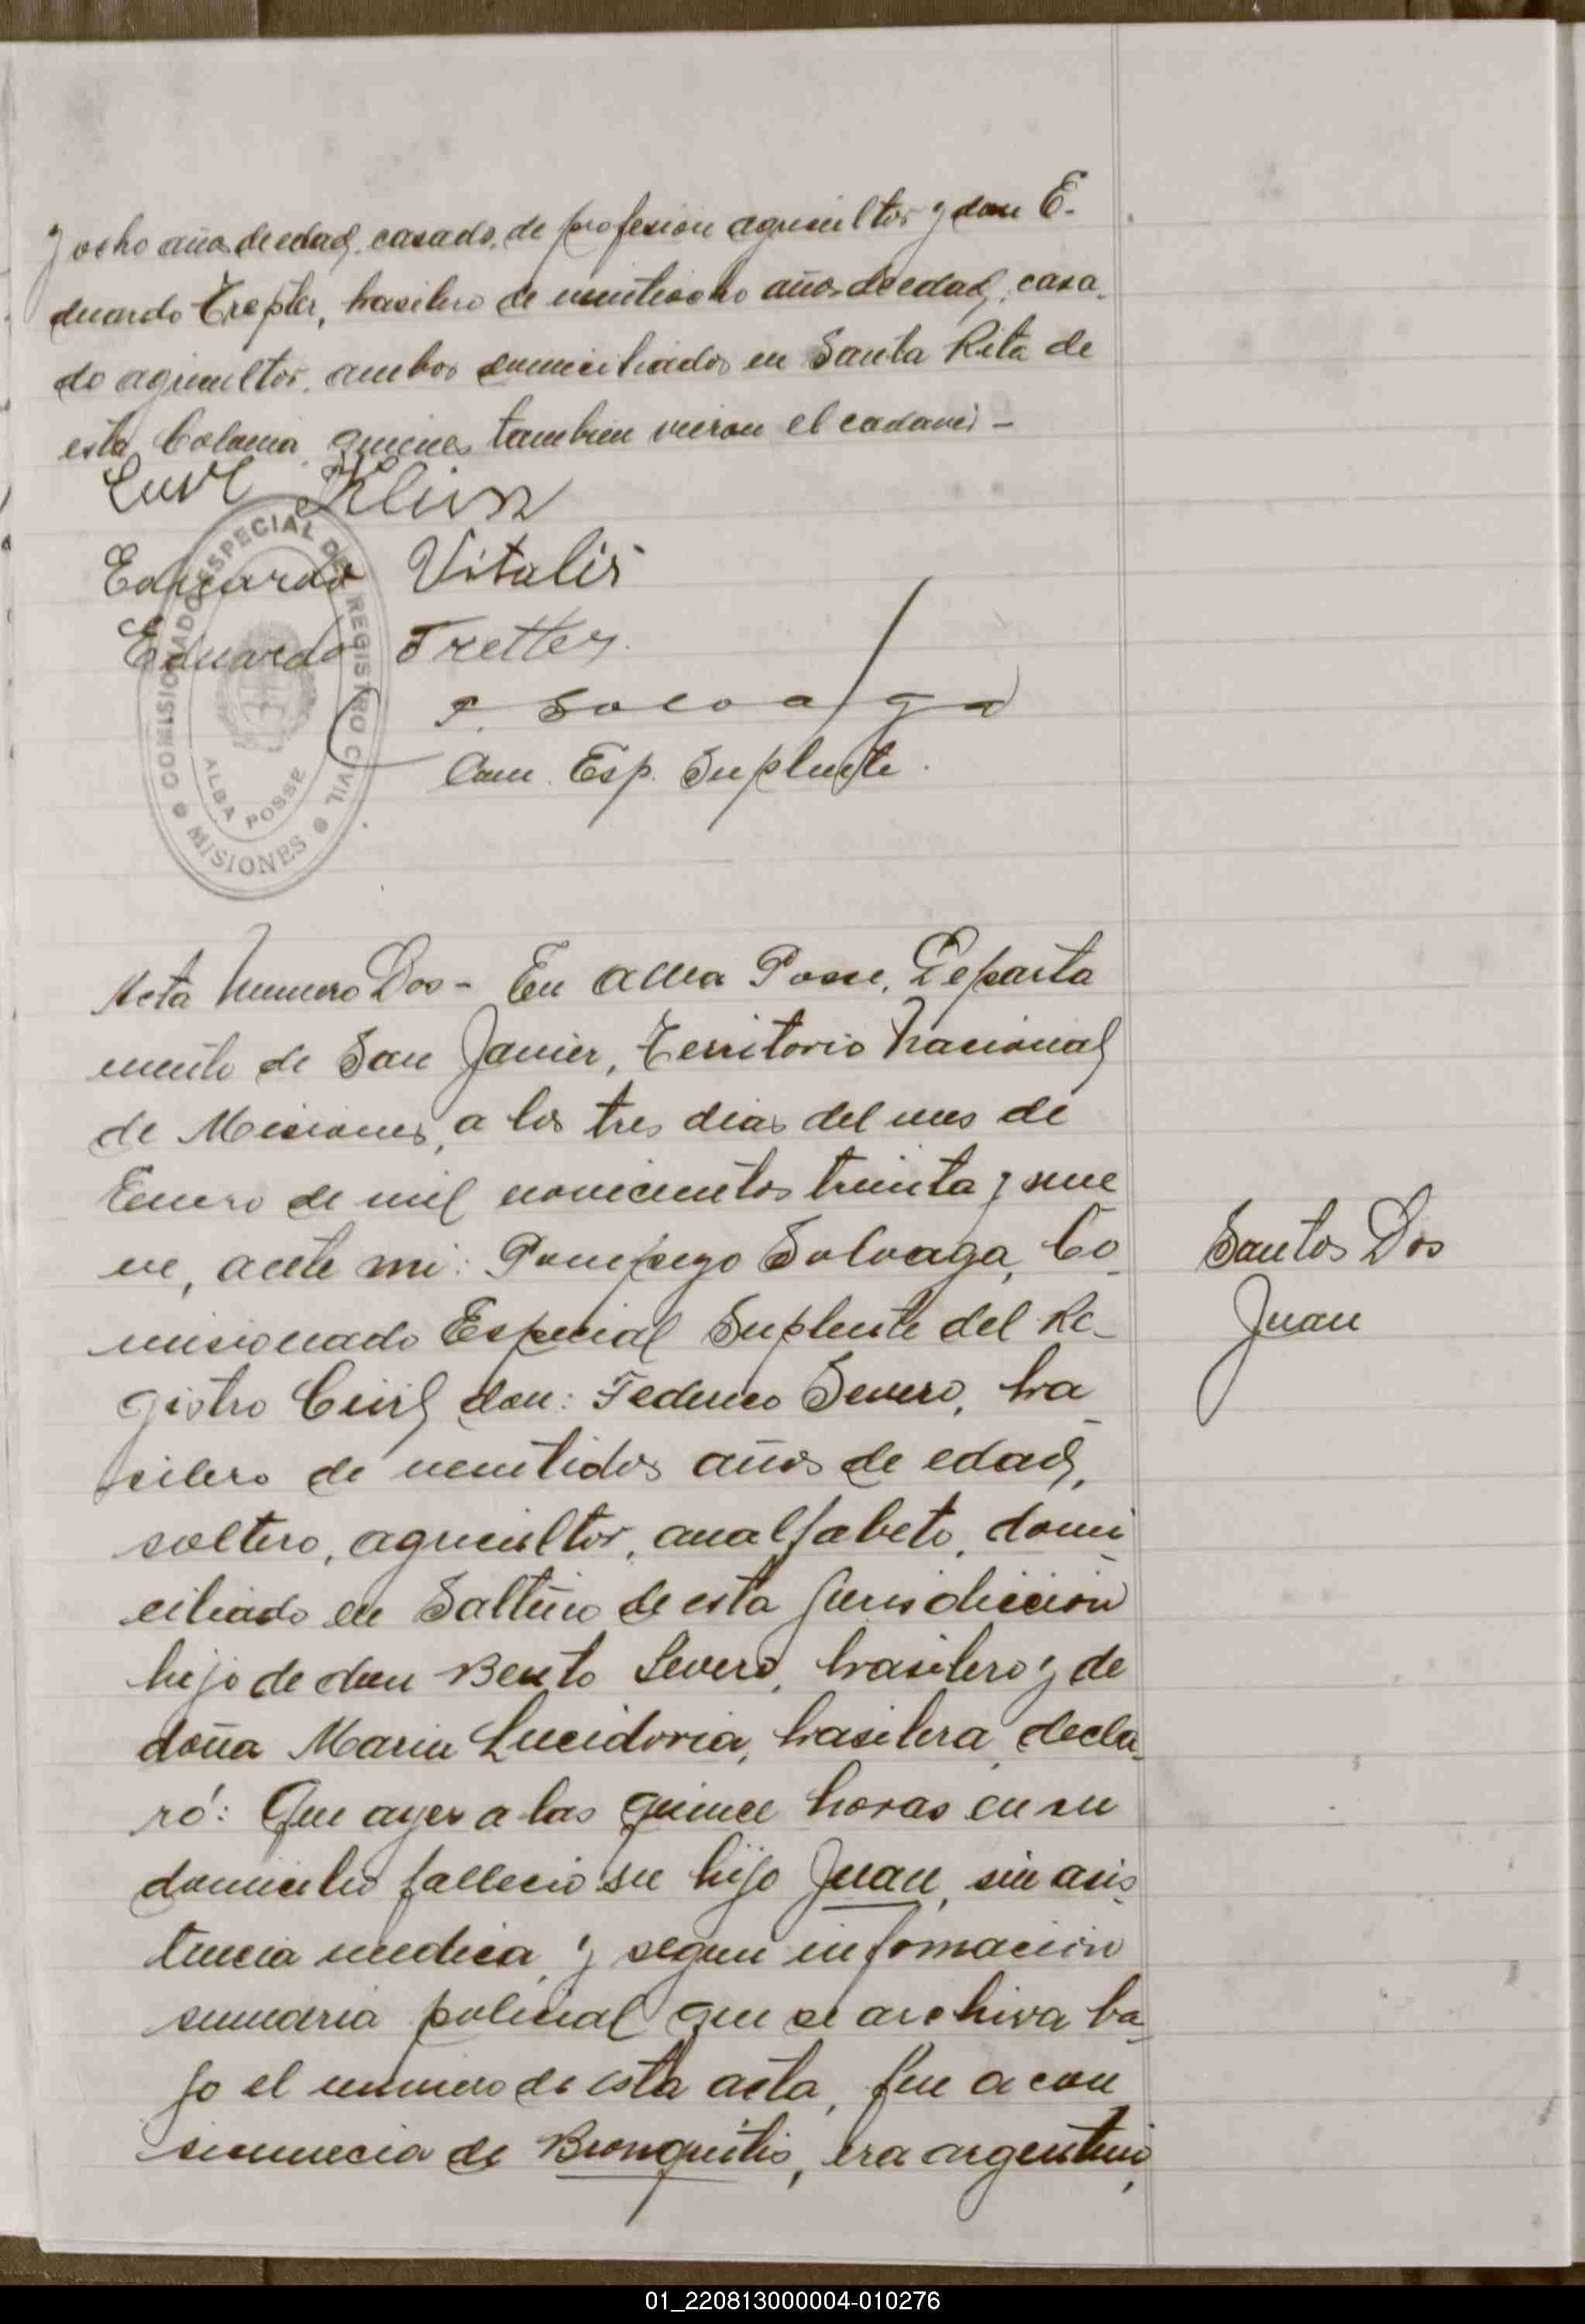 y ocho años de edad, casado, de profesion agricultor y don E-
duardo Trepter, brasilero de veintiocho años de edad, casa-
do agricultor, ambos domiciliados en Santa Rita de
esta Colonia quienes tambien vieron el cadaver -
Klein
Eduardo Vitalis
Eduardo Tretter
P. Solvaga
Com. Esp. Suplente.
COMISIONADO ESPECIAL DEL REGISTRO CIVIL
ALBA POSSE
MISIONES
Acta Numero Dos - En Alba Posse, Departa
mento de San Javier, Territorio Nacional
de Misiones, a los tres dias del mes de
Enero de mil novecientos treinta y nue
ve, ante mi: Pompeyo Solvaga, Co-
misionado Especial Suplente del Re-
gistro Civil don: Federico Severo, bra-
silero de veintidos años de edad,
soltero, agricultor, analfabeto, domi-
ciliado en Saltiño de esta jurisdiccion
hijo de don Bento Severo, brasilero y de
doña Maria Lucidoria, brasilera, decla-
ró: Que ayer a las quince horas en su
domicilio fallecio su hijo Juan, sin asis-
tencia medica, y segun infomacion
sumaria policial que se archiva ba-
jo el numero de esta acta, fue a con
secuencia de Bronquitis, era argentino,
Santos Dos
Juan
01_220813000004-010276